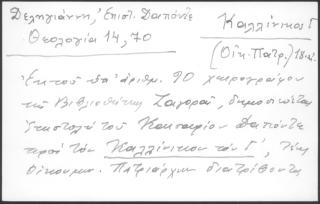 Δεληγιάννη, Ἐπιστ. Δαπόντε
Θεολογία 14, 70
Καλλίνικος Γ΄
(Οἰκ. Πατρ.) 18 αἰ.
Ἐκ τοῦ ὑπ' ἀριθμ. 90 χειρογράφου
τῆς Βιβλιοθήκης Ζαγορᾶς, δημοσιεύεται
ἐπιστολὴ τοῦ Καισαρίου Δαπόντε
πρὸς τὸν Καλλίνικον τὸν Γ΄,
Οἰκουμεν. Πατριάρχην διατρίβοντα